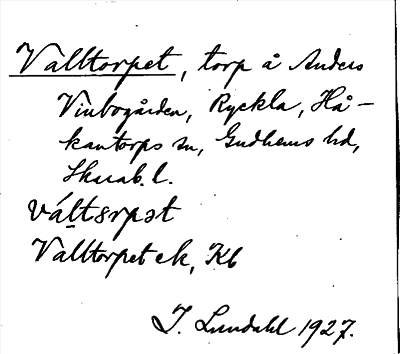 Valltorpet, torp å Anders
Vinbogården, Ryckla, Hå-
kantorps sn, Gudhems hd,
Skarab. l.
váltɘrpət
Valltorpet ek, Kb
I. Lundahl 1927.